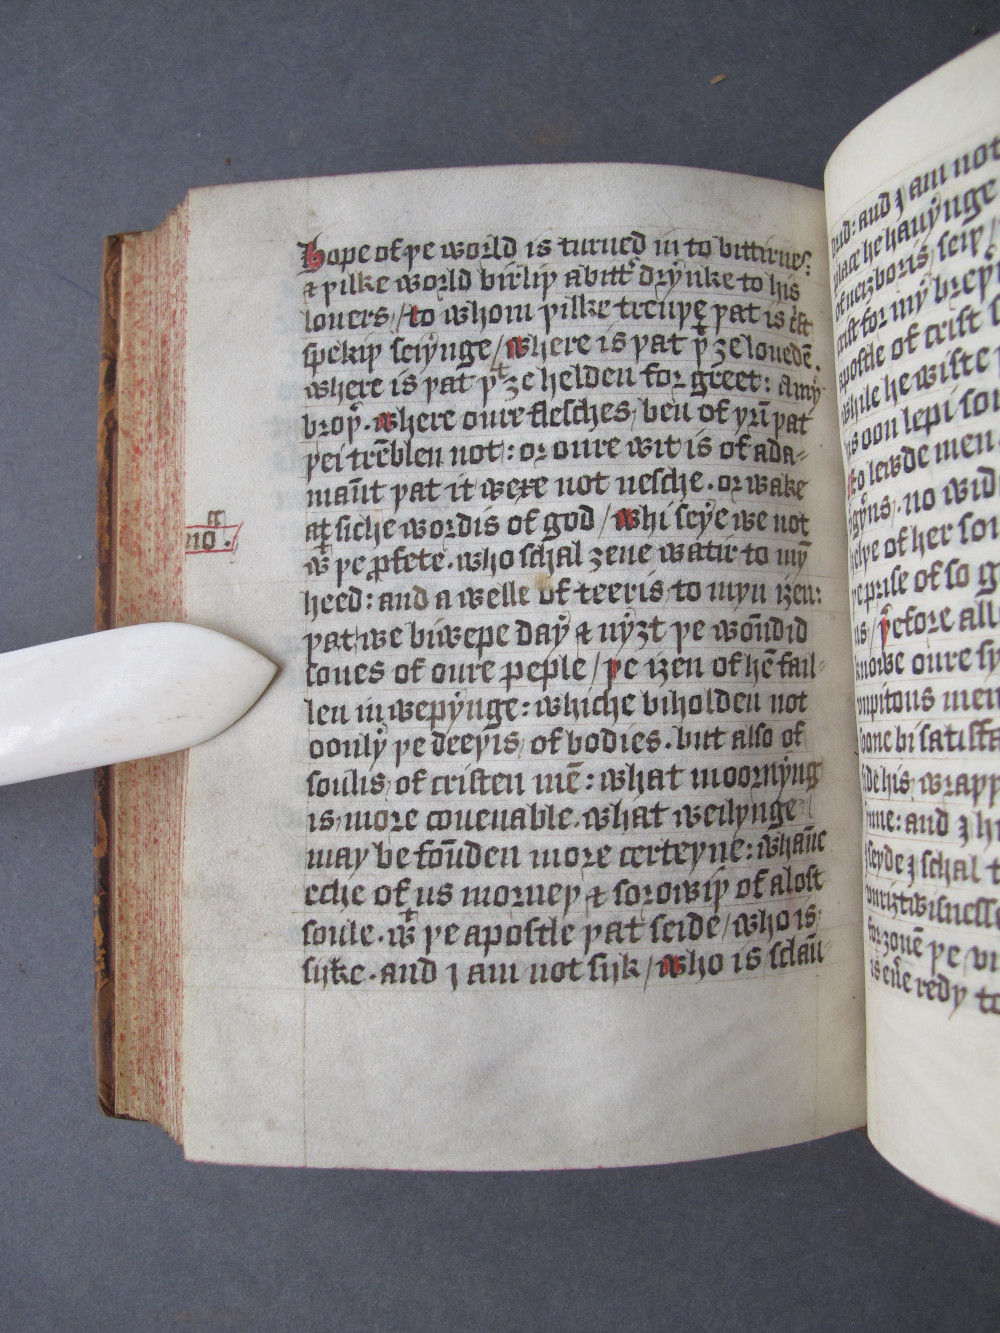 hope of þe world is turned in to bittirnes:
⁊ þilke world birliþ a bittir drynke to his
louers / to whom þilke treuþe þat is crist
spekiþ seiynge / where is þat þᵗ ȝe loueden.
where is þat þᵗ ȝe helden for greet: a my
broþ̛. where oure flesches ben of yrn̄ þat
þei trēblen not: or oure wit is of ada-
maūt þat it were not nesche. or wake
at siche wordis of god / whi seye we not
wᵗ þe ꝓfete. who schal ȝeue watir to myn
heed: and a welle of teeris to myn iȝen:
þat we biwepe day ⁊ nyȝt þe woūdid
soules of oure peple / þe iȝen of hē fail-
len in wepynge: whiche biholden not
oonly þe deeþis of bodies. but also of
soulis of cristen mē: what moornyng
is more couenable. what weilynge
may be foūden more certeyne: whāne
eche of us morneþ ⁊ sorowiþ of a lost
soule. wᵗ þe apostle þat seide / who is
sijke. and j am not sijk / who is sclaū-
no.ᵃ
dud: and j am not
place he hauynge
of neiȝboris seiþ /
crist for my breþ
apostle of crist
while he wiste
is oon lepi sou
to lewde men
no wid
helpe of her son
þe prise of so g
us / þerfore all
knowe oure sy
mpitous men
soone bi satisfa
side his wrapp
ynne: and j h
seyde j schal
vnriȝtwisnesse
for ȝouē þe
is eūe redy to